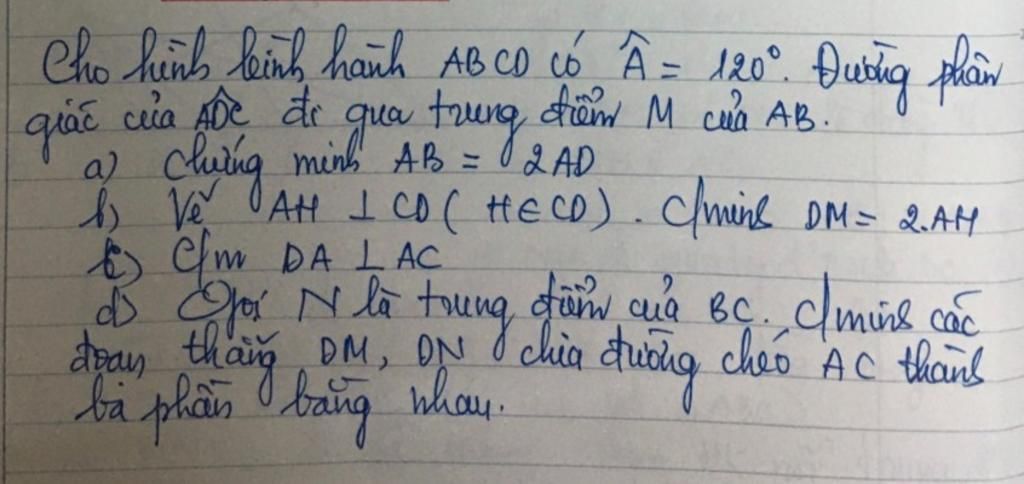 Cho hình bình hành ABCD có Â = 120°. Đường phân
giác của ADC đi qua trung điểm M của AB.
a) Chứng minh AB = 2AD
b) Vẽ AH ⊥ CD ( H ∈ CD ) . C/minh DM = 2.AH
c) C/m DA ⊥ AC
d) Gọi N là trung điểm của BC. C/minh các
đoạn thẳng DM, DN chia đường chéo AC thành
ba phần bằng nhau.